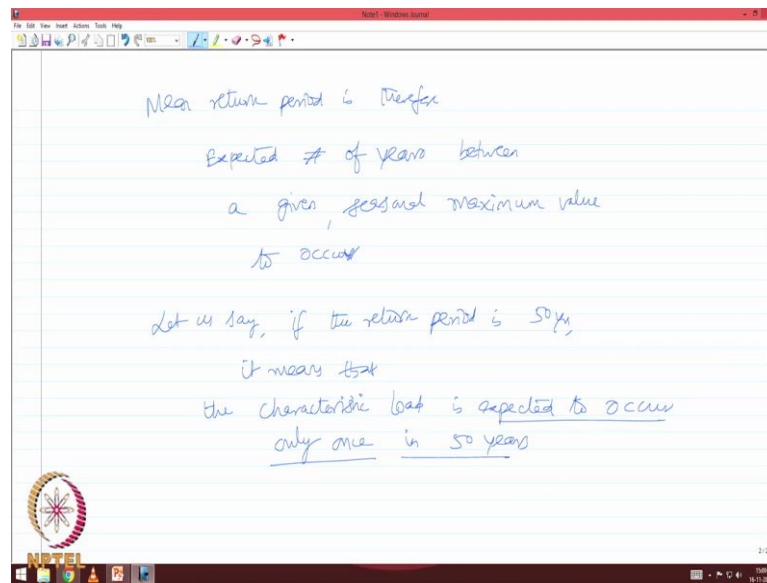 Note1 - Windows Journal
File Edit View Insert Actions Tools Help
Mean return period is therefore
Expected # of years between
a given, seasonal maximum value
to occur
Let us say, if the return period is 50 yrs,
it means that
the characteristic load is expected to occur
only once in 50 years
NPTEL